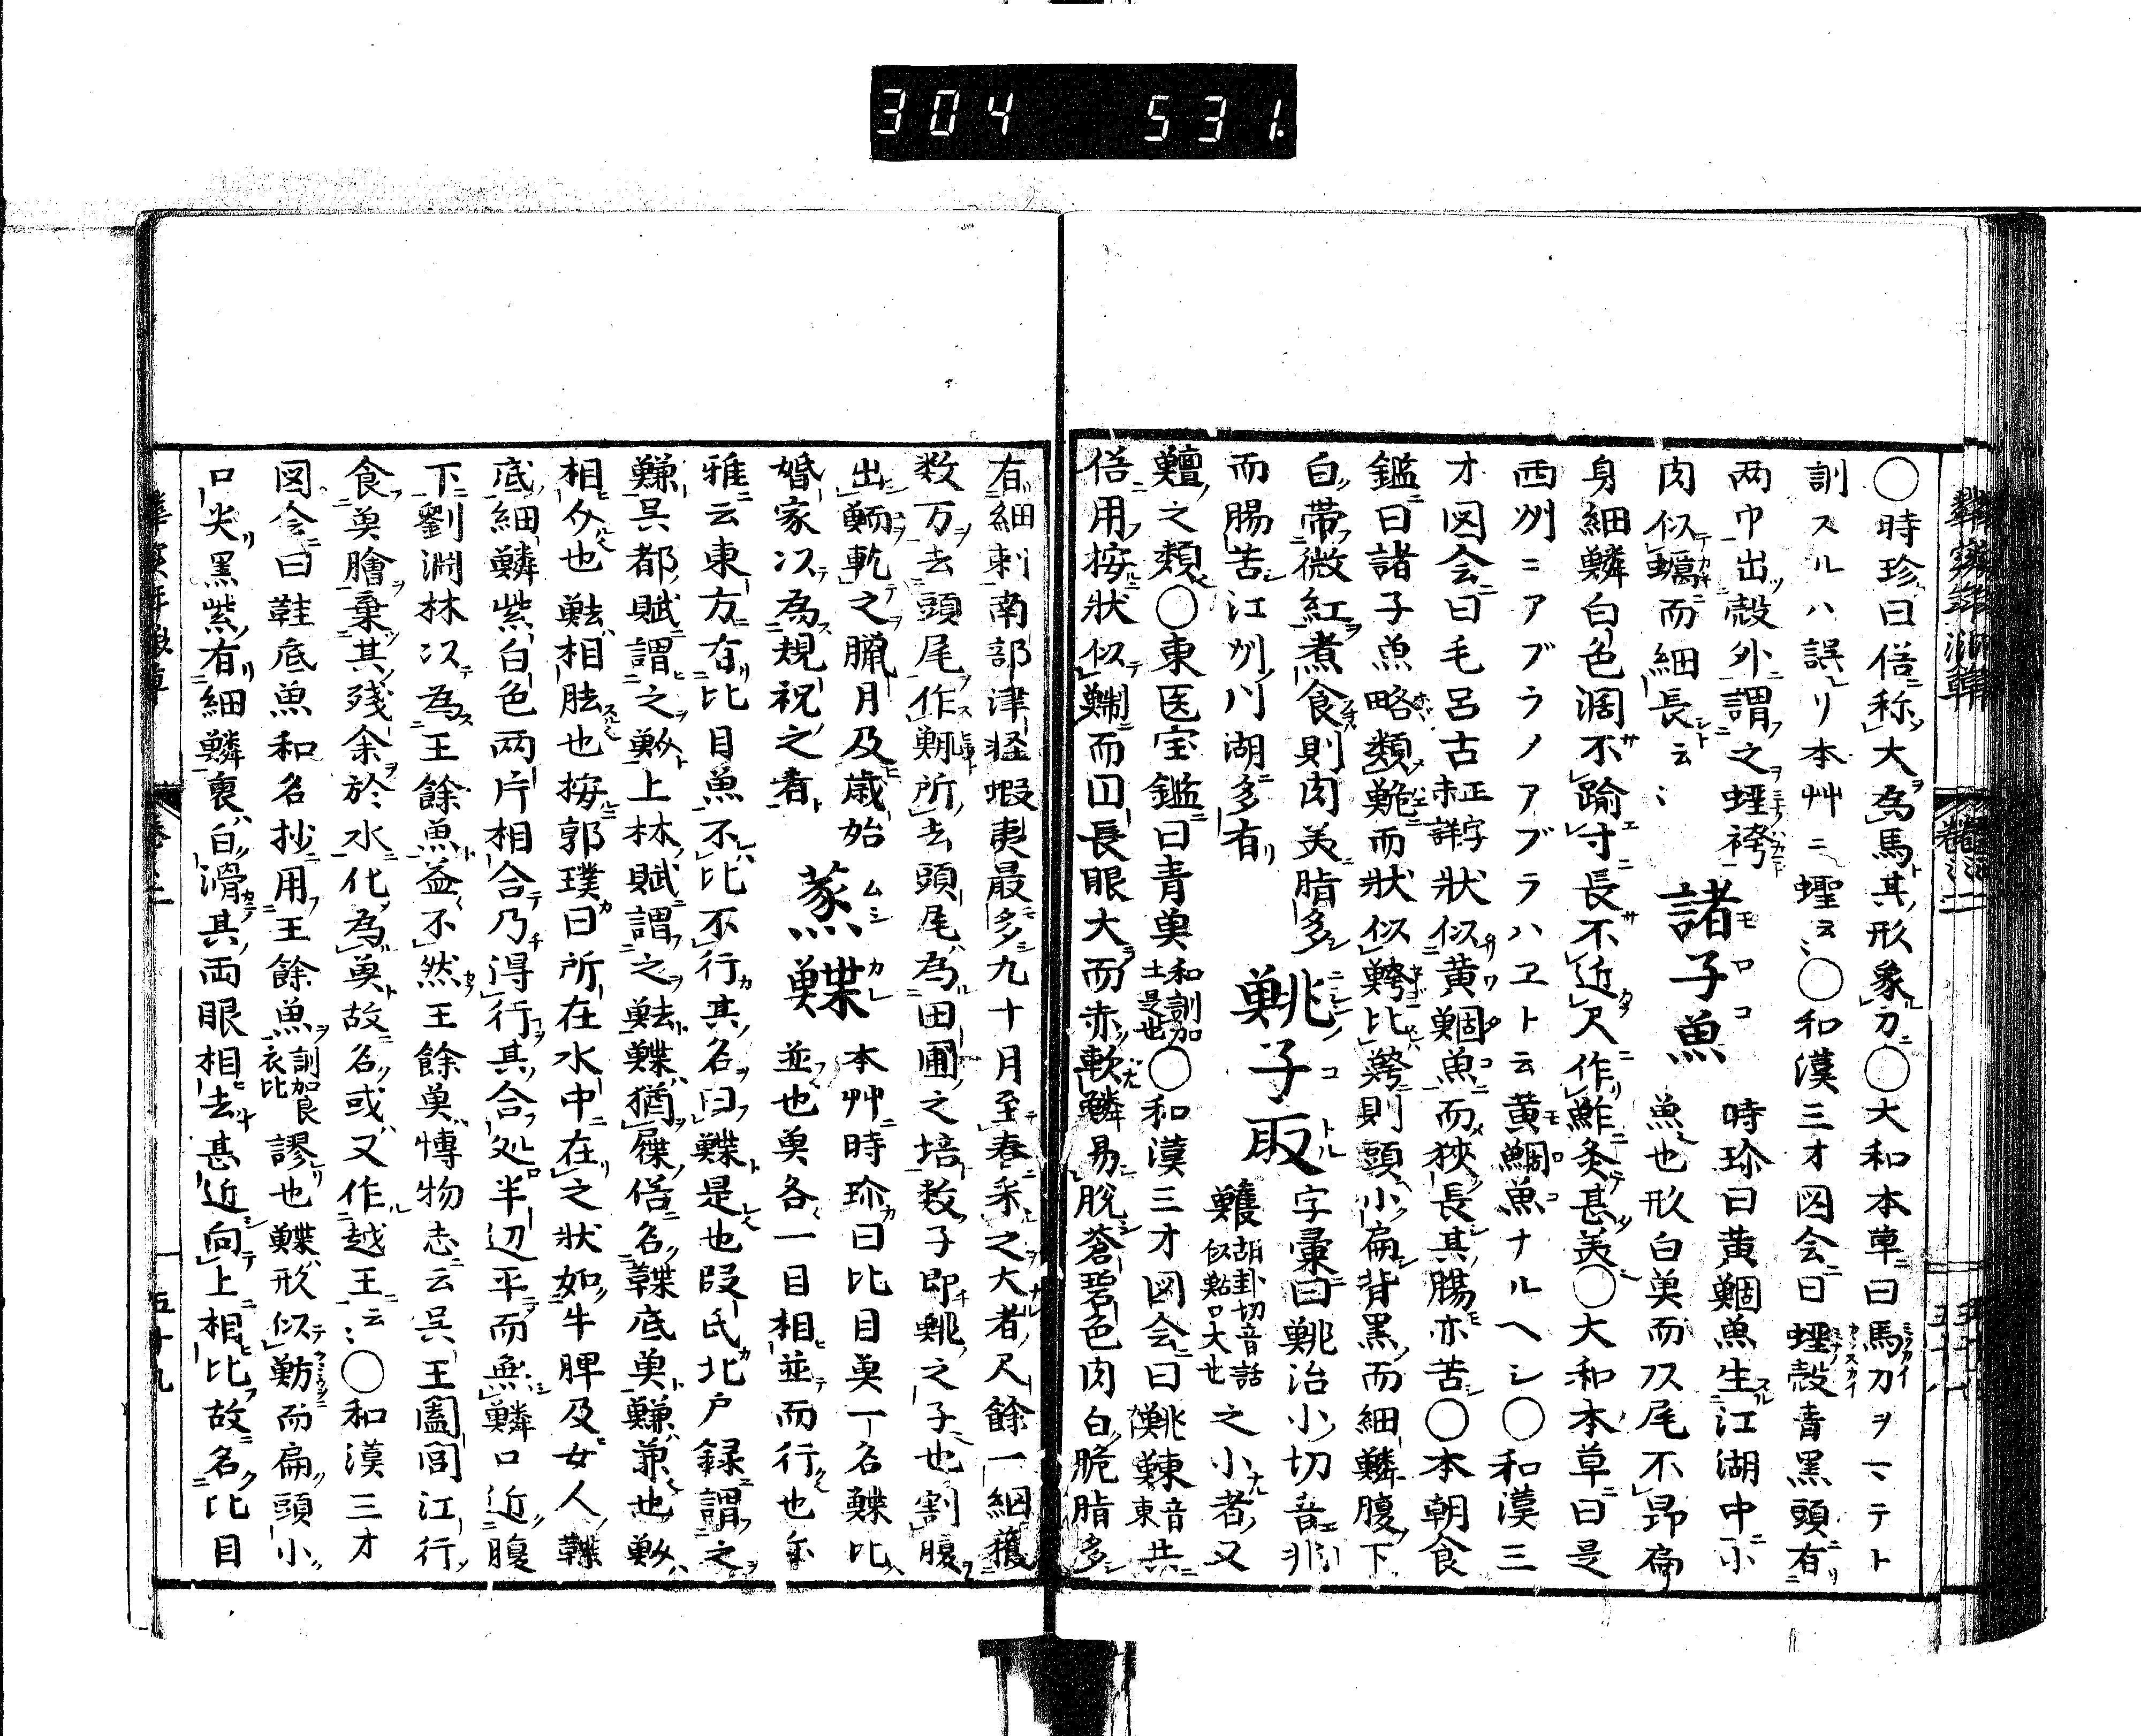 304 531.
〇時珍曰俗称大為馬其形象刀〇大和本草曰馬刀ヲマテト
訓スルハ誤リ本艸ニ蟶云〻〇和漢三才図会曰蟶殻青黒頭有
両巾出殻外謂之蟶袴 諸子魚 時珍曰黄鯝魚生江湖中小
肉似蠣而細長云〻 魚也形白魚而叉尾不昂扁
身細鱗白色濶不踰寸長不近尺作鮓炙甚美〇大和本草曰是
西州ニアブラノアブラハヱト云黄鯝魚ナルヘシ〇和漢三
才図会曰毛呂古正字未詳状似黄鯝魚而狭長其腸亦苦〇本朝食
鑑曰諸子魚略類鮠而状似鮬比鮬則頭小扁背黒而細鱗腹下
白帯微紅煮食則肉美脂多 鯡子取 字彙曰鯡治小切音兆
而腸苦江州川湖多有 鱯胡卦切音話似鮎口大也之小者又
鱣之類〇東医宝鑑曰青魚和訓加土是也〇和漢三才図会曰鯡鰊音東共
俗用按状似鯯而円長眼大而赤軟鱗易脱蒼碧色肉白脆脂多
有細刺南部津軽蝦夷最多九十月至春采之大者尺餘一網獲
数万去頭尾作鯡所去頭尾為田圃之培数子即鯡之子也割腹
出鯡乾之臘月及歳始 蒸鰈 本艸時珍曰比目魚一名鰈比
婚家以為規祝之肴 並也魚各一目相並而行也尓
雅云東方有比目魚不比不行其名曰鰈是也段氏北戸録謂之
鰜呉都賦謂之魪上林賦謂之魼鰈猶屧俗名鞋底魚鰜兼也魪
相介也魼相胠也按郭璞曰所在水中在之状如牛脾及女人鞋
底細鱗紫白色両片相合乃得行其合処半辺平而無鱗口近腹
下劉淵林以為王餘魚益不然王餘魚慱物志云呉王闔閭江行
食魚膾棄其残余於水化為魚故名或又作越王云〻〇和漢三才
図会曰鞋底魚和名抄用王餘魚訓加良衣比謬也鰈形似魴而扁頭小
口尖黒紫有細鱗裏白滑其両眼相去甚近向上相比故名比目